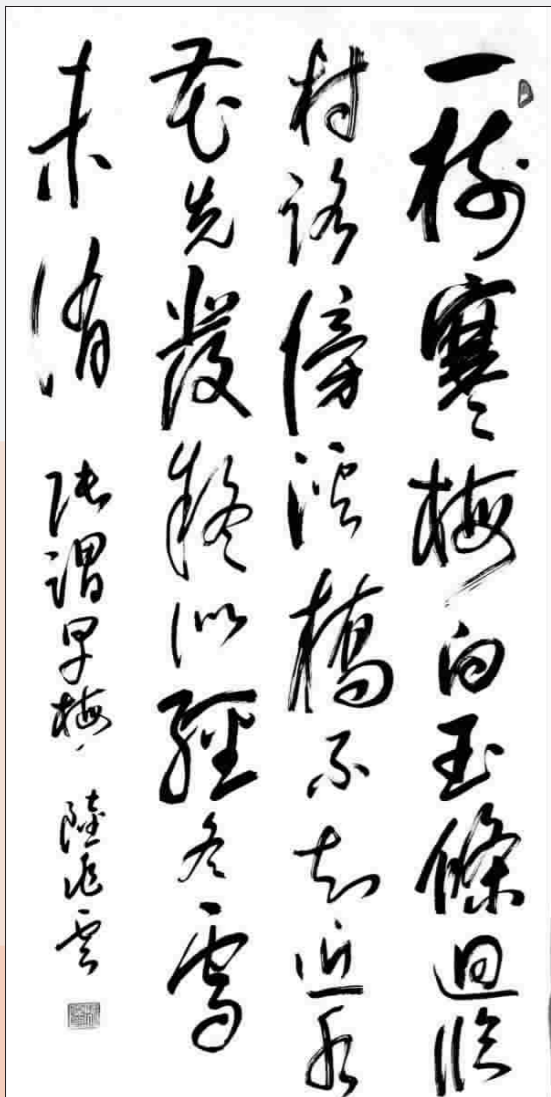 一樹寒梅白玉條迴臨
村路傍溪橋不知近水
花先發疑似經冬雪
未消 張謂早梅 陸